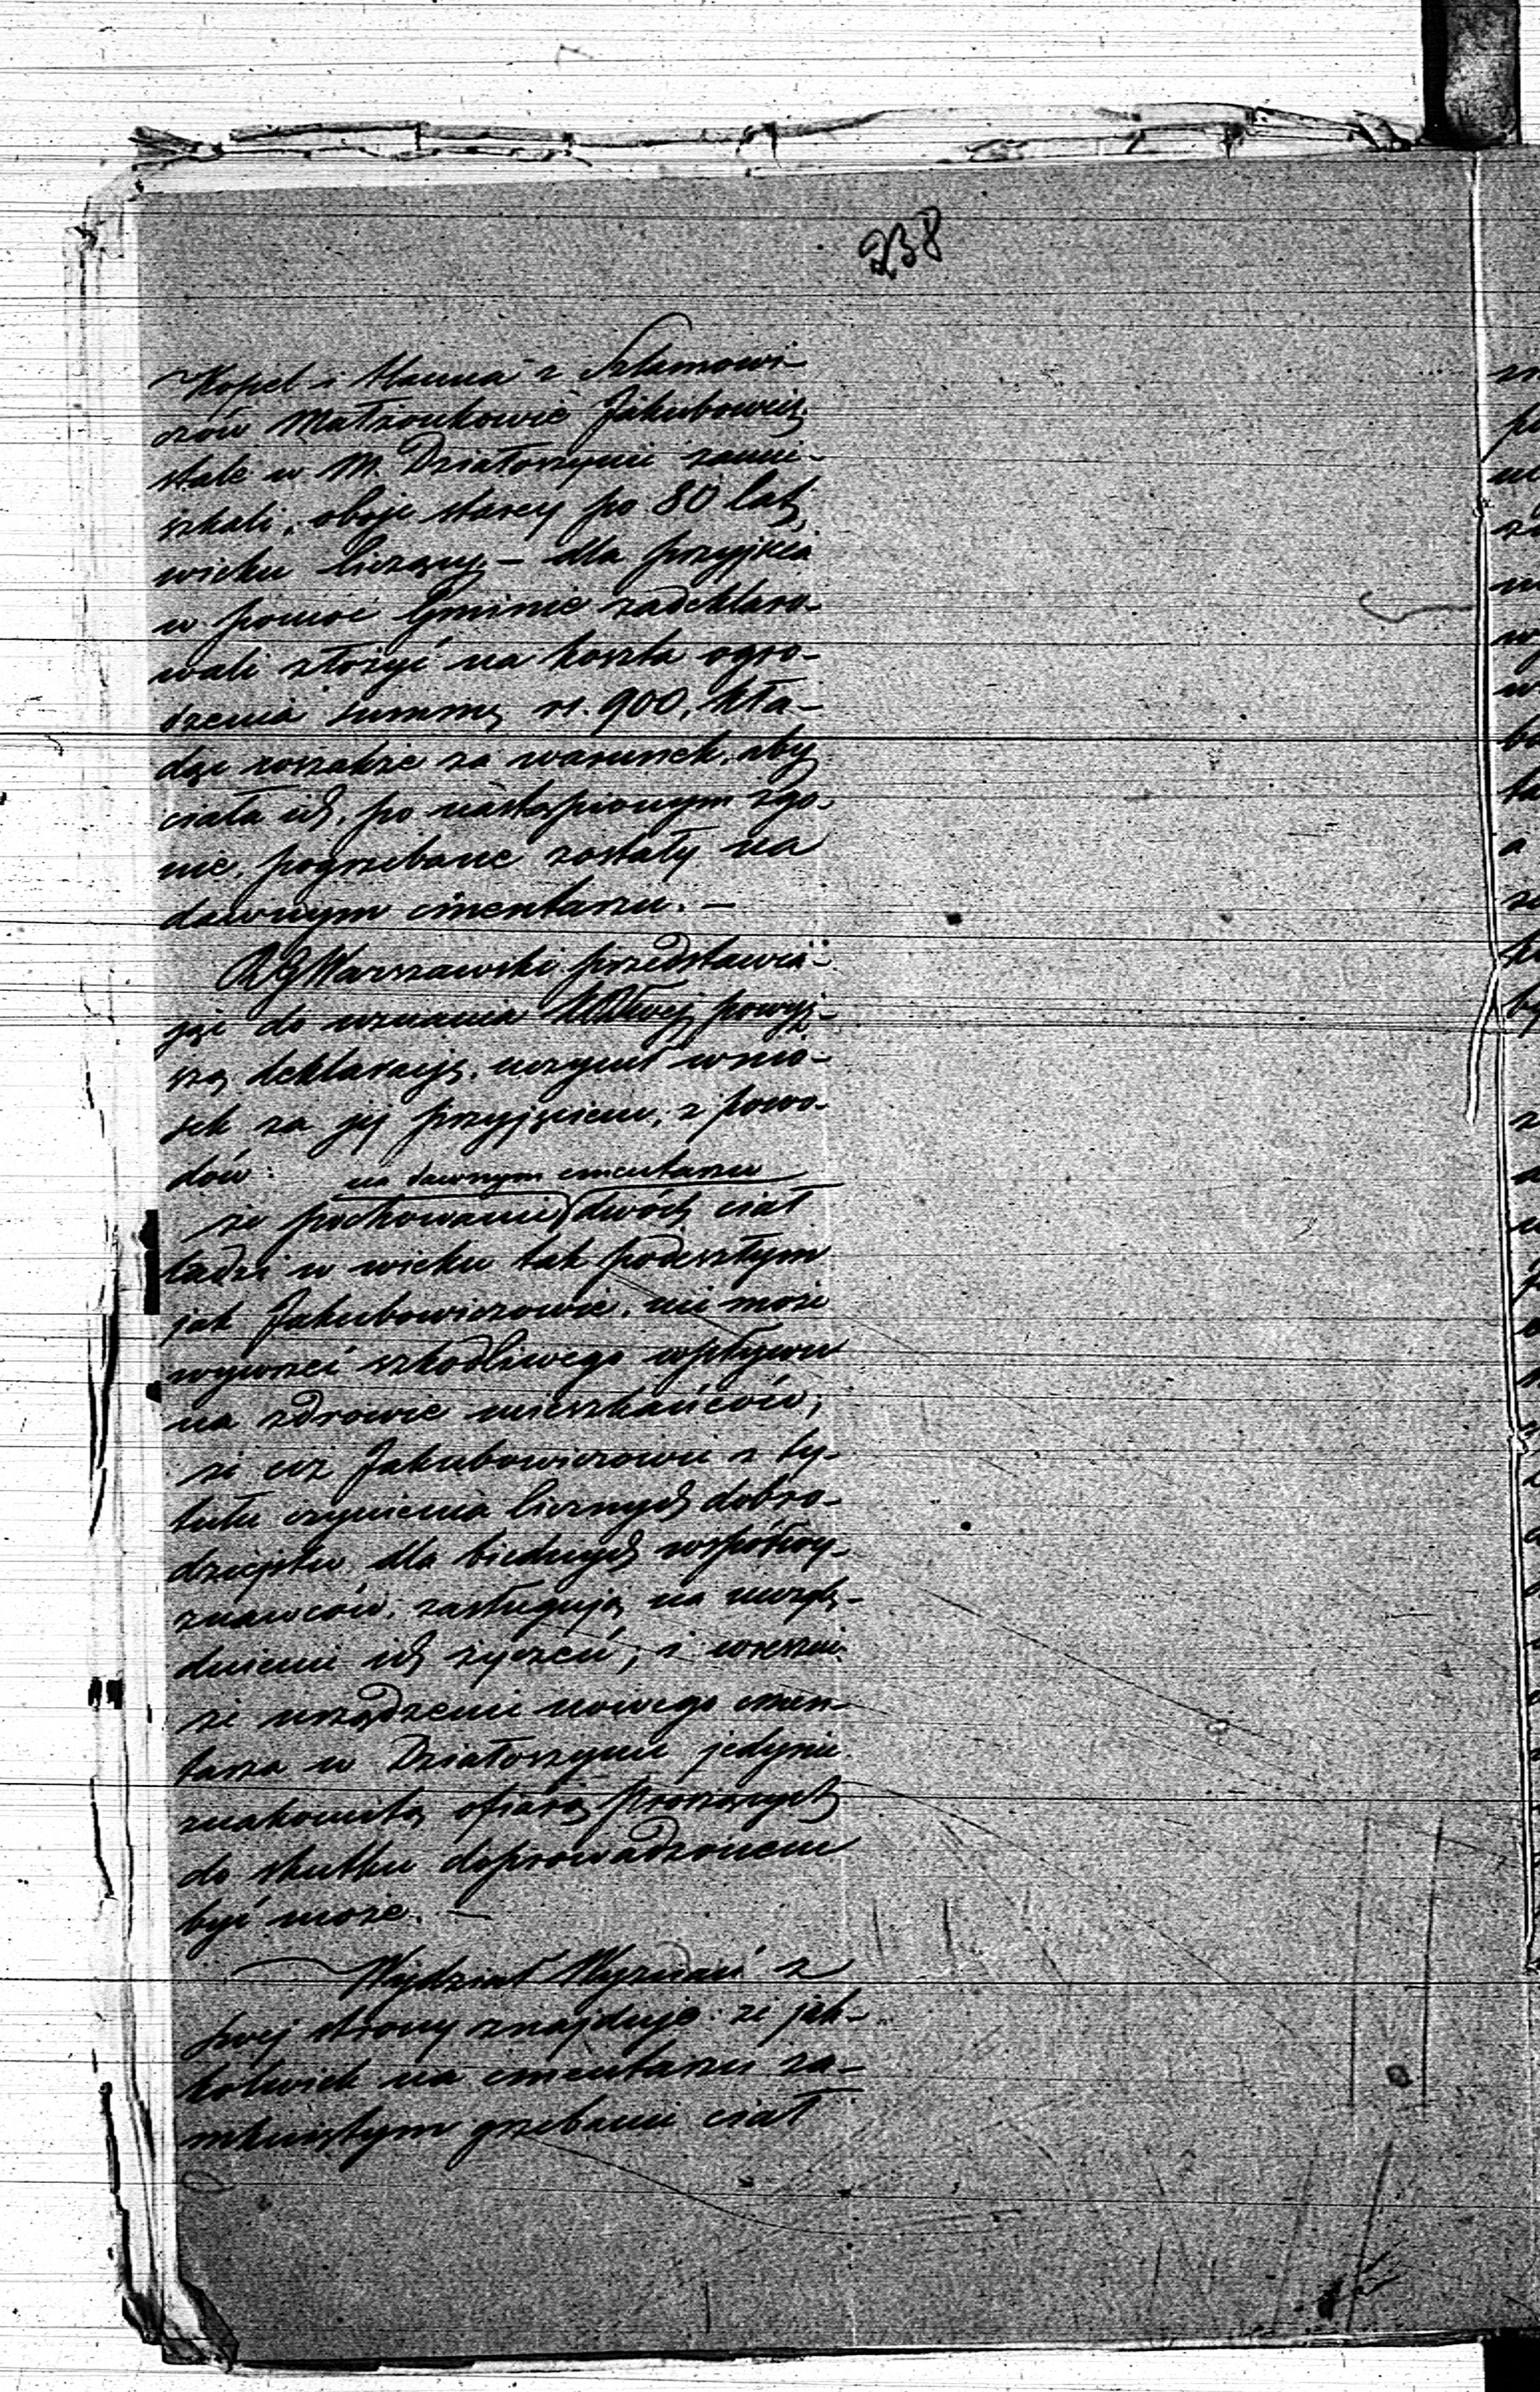 238
Kopel i Hanna z Szlamowi-
czów Małżonkowie Jakubowicz
stale w M. Działoszynie zamie-
szkali, oboje starcy po 80 lat
wieku liczący, – dla przyjścia
w pomoc Gminie zadeklaro-
wali złożyć na koszta ogro-
dzenia summę rs. 900, kła-
dąc wszakże za warunek, aby
ciała ich, po nastąpionym zgo-
nie, pogrzebane zostały na
dawnym cmentarzu. –
RGWarszawski przedstawia-
jąc do uznania powyż-
szą deklaracyę, uczynił wnio-
sek za jej przyjęciem, z powo-
dów:
na dawnym cmentarzu
że pochowanie dwóch ciał
ludzi w wieku tak podeszłym
jak Jakubowiczowie, nie może
wywrzeć szkodliwego wpływu
na zdrowie mieszkańców;
że ciż Jakubowiczowie z ty-
tułu czynienia licznych dobro-
dziejstw dla biednych współwy-
znawców, zasługują na uwzglę-
dnienie ich życzeń; i wreszcie
że urządzenie nowego cmen-
tarza w Działoszynie jedynie
znakomitą ofiarą Proszących
do skutku doprowadzonem
być może. –
Wydział Wyznań z
swej strony znajduje: że jak-
kolwiek na cmentarzu za-
mkniętym grzebanie ciał